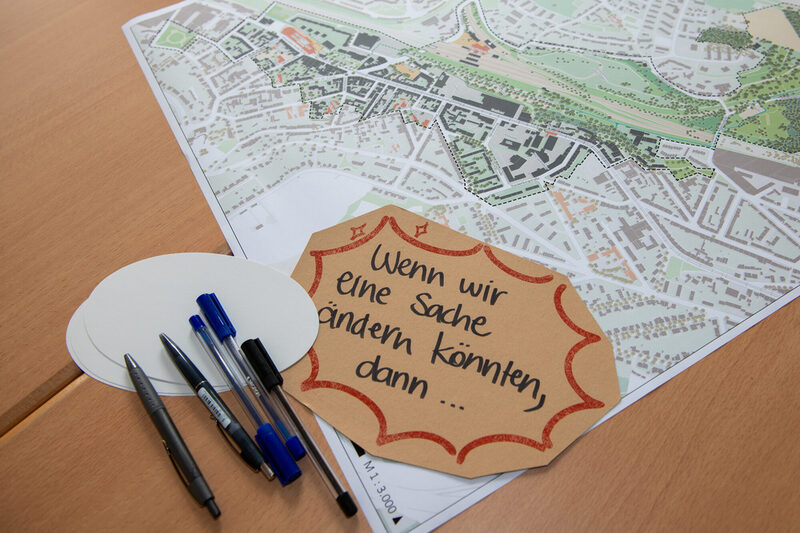 Wenn wir
eine Sache
ändern könnten,
dann ...
M 1 : 3.000